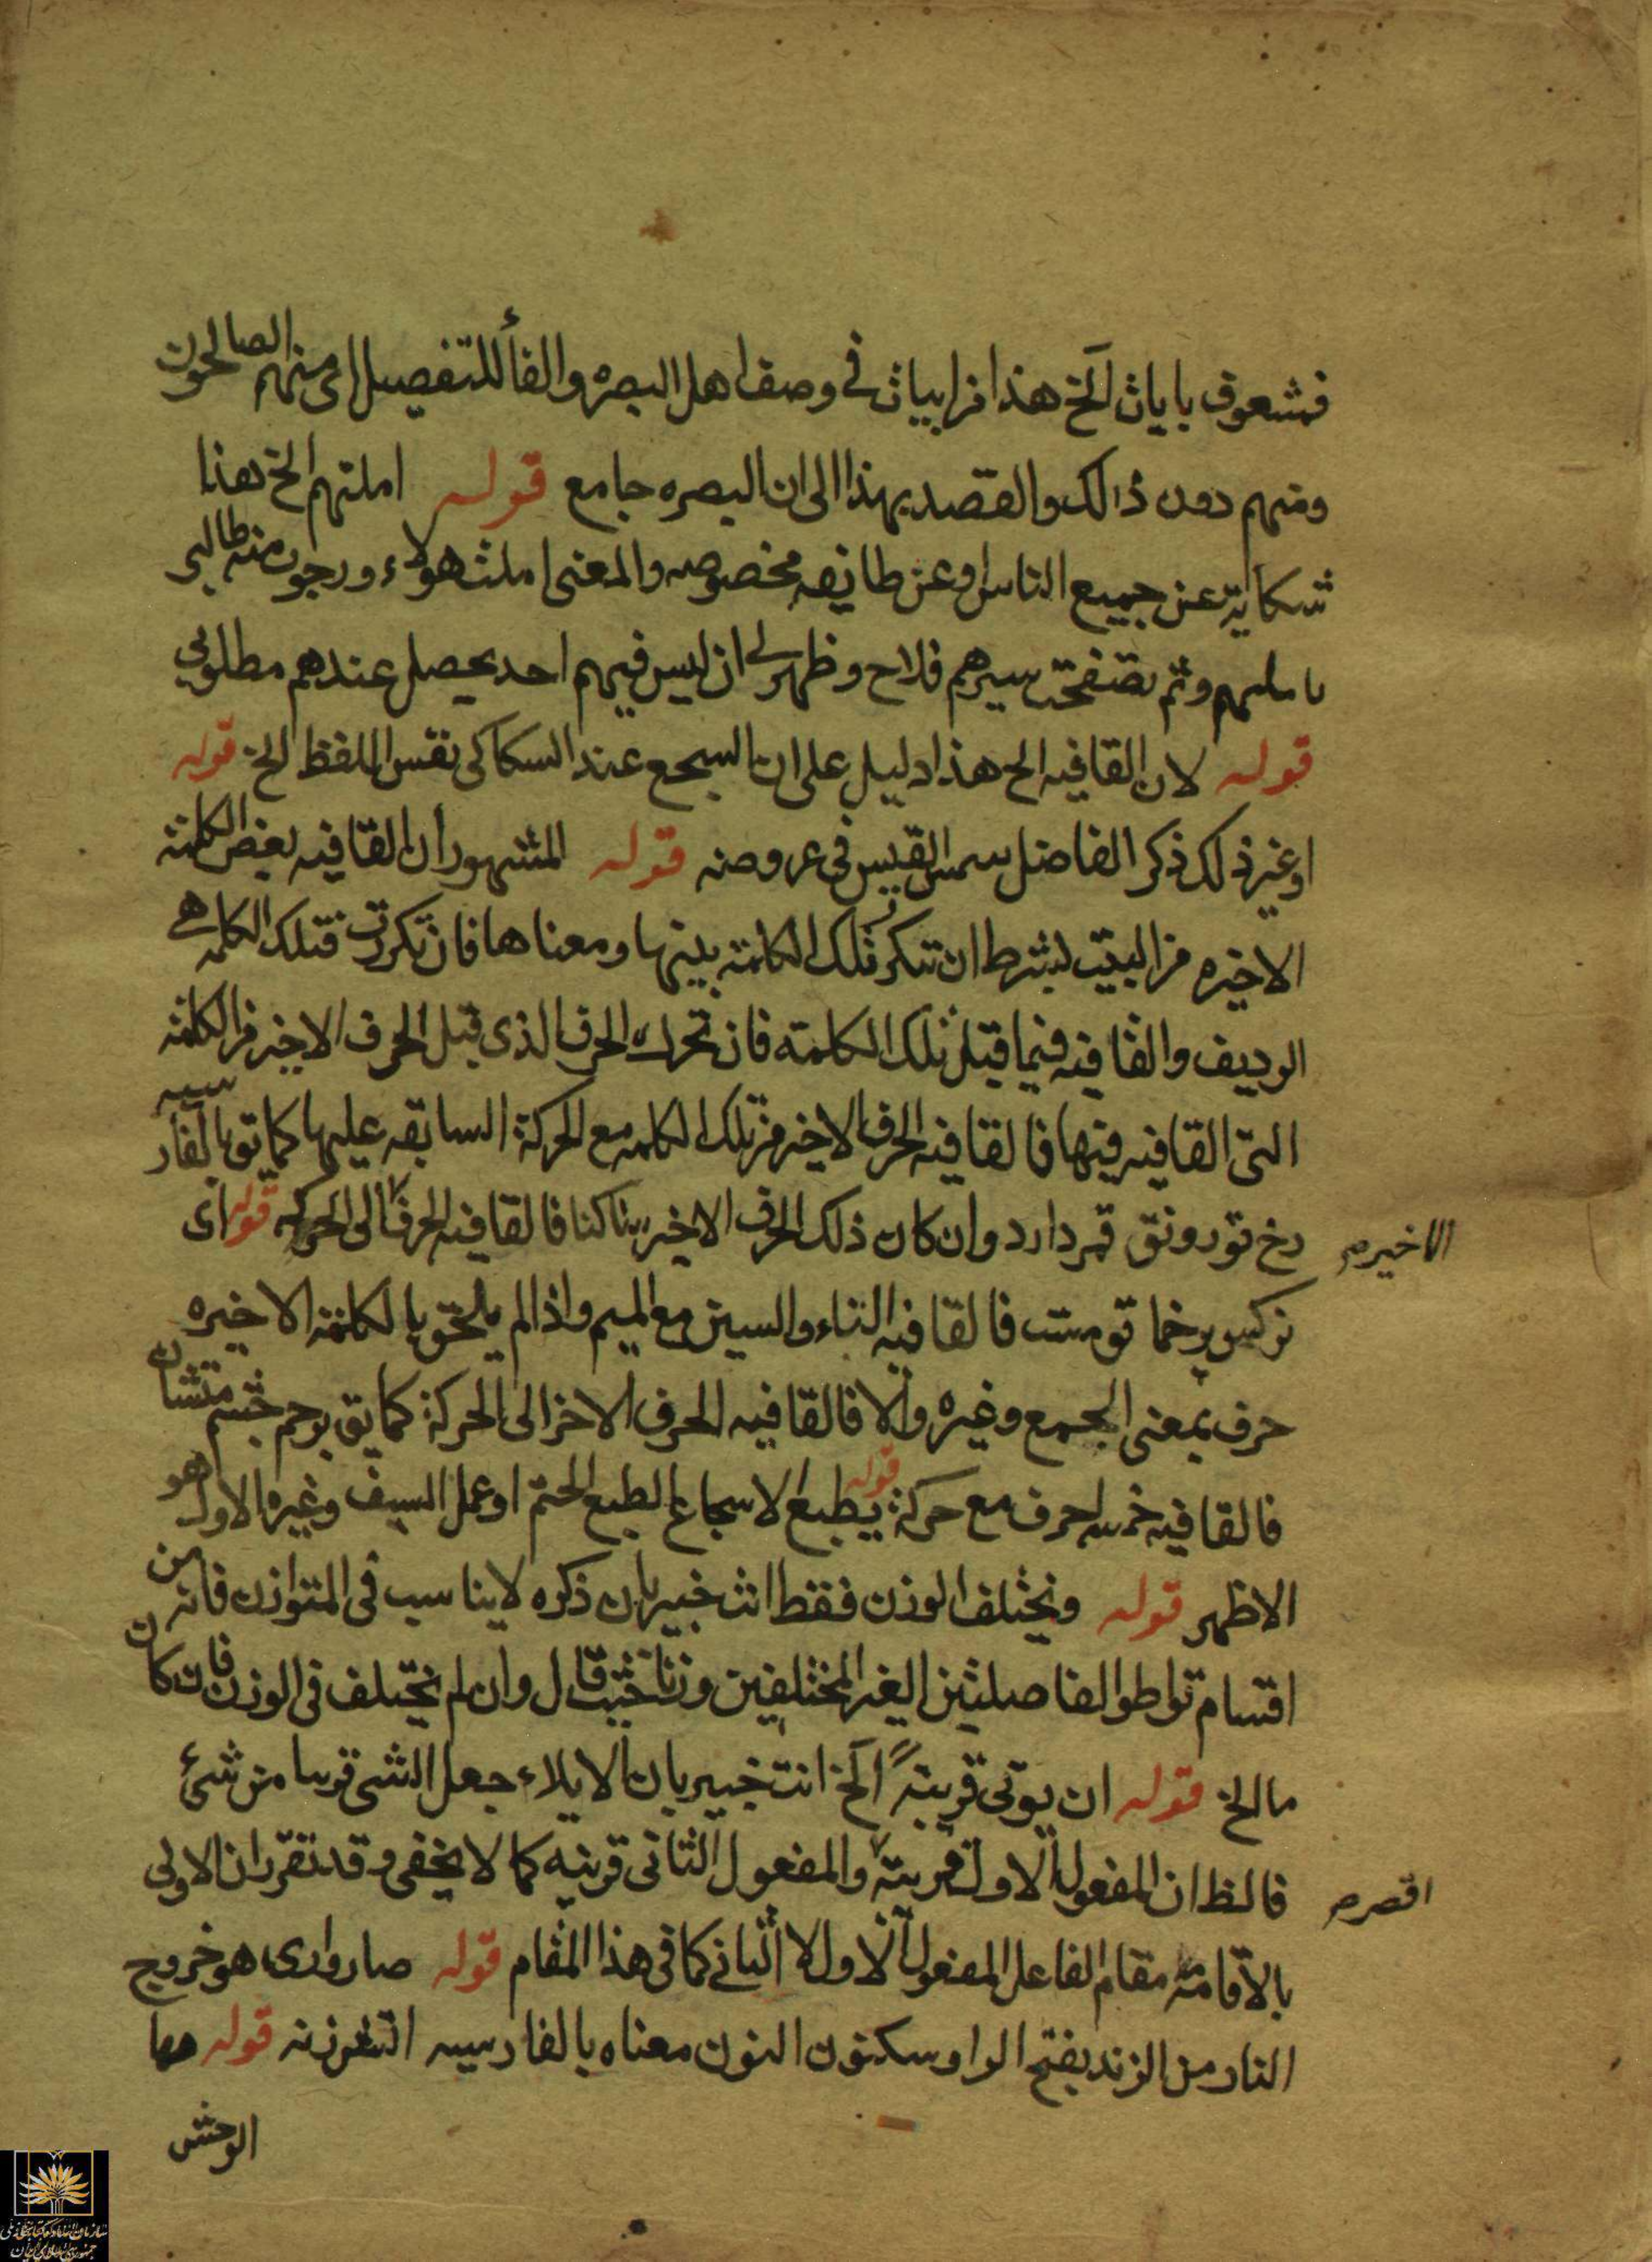 فمشعوف بايات الخ هذا من ابيات في وصف اهل البصره والفأ للتفصيل اى منهم الصالحون
ومنهم دون ذالك والقصد بهذا الى ان البصره جامع قوله املتهم الخ هذا
شكاية عن جميع الناس او عن طايفه مخصوصه والمعنى املت هولاء ورجوت منه طالبى
ثم تصفحت سيرهم فلاح وظهر لى ان ليس فيهم احد يحصل عندهم مطلوبي
قوله لان القافيه الخ هذا دليل على ان السجع عند السكاكى نفس اللفظ الخ قوله
او غير ذلك ذكر الفاضل شمس القيس فى عروضه قوله المشهور ان القافيه بعض الكلمة
الاخيره من البيت بشرط ان تتكرر تلك الكلمة بينها ومعناها فان تكررت فتلك الكلمه هى
الرديف والقافيه فيما قبل تلك الكلمته فان تحرك الحرف الذى قبل الحرف الاخير من الكلمة
التى القافيه فيها فالقافيه الحرف الاخير من تلك الكلمه مع الحركة السابقه عليها كما تق بالفارسيه
رخ تو رونق قمر دارد وان كان ذلك الحرف الاخير ساكنا فالقافيه الحرف الى الحركه قوله اى
الاخيره
نركس پرخما تو مست فالقافيه التاء والسين مع الميم واذا لم يلحق بالكلمة الاخيره
حرف بمعنى الجمع وغيره والا فالقافيه الحرف الاخر الى الحركة كما يق برحم چشم مستشان
فالقافيه خمسه احرف مع حركة قوله يطبع الاسجاع الطبع الختم او عمل السيف وغيره الاول هو
الاظهر قوله ويختلف الوزن فقط انت خبير بان ذكره لا يناسب فى المتوازن فانه من
اقسام تواطو الفاصلتين الغير المختلفين وزنا حيث قال وان لم يختلف فى الوزن فان كان
ما الخ قوله ان يوتى قريبة الخ انت خبير بان الايلاء جعل الشى قريبا من شئ
فالظ ان المفعول الاول قريبة والمفعول الثانى قرينه كما لا يخفى وقد تقرر ان الاولى
اقصر
بالاقامة مقام الفاعل المفعول الاول لا الثاني كما فى هذا المقام قوله صار وارى هو خروج
النار من الزند بفتح الرا وسكون النون معناه بالفارسيه اتش زنه قوله مها
الوحش